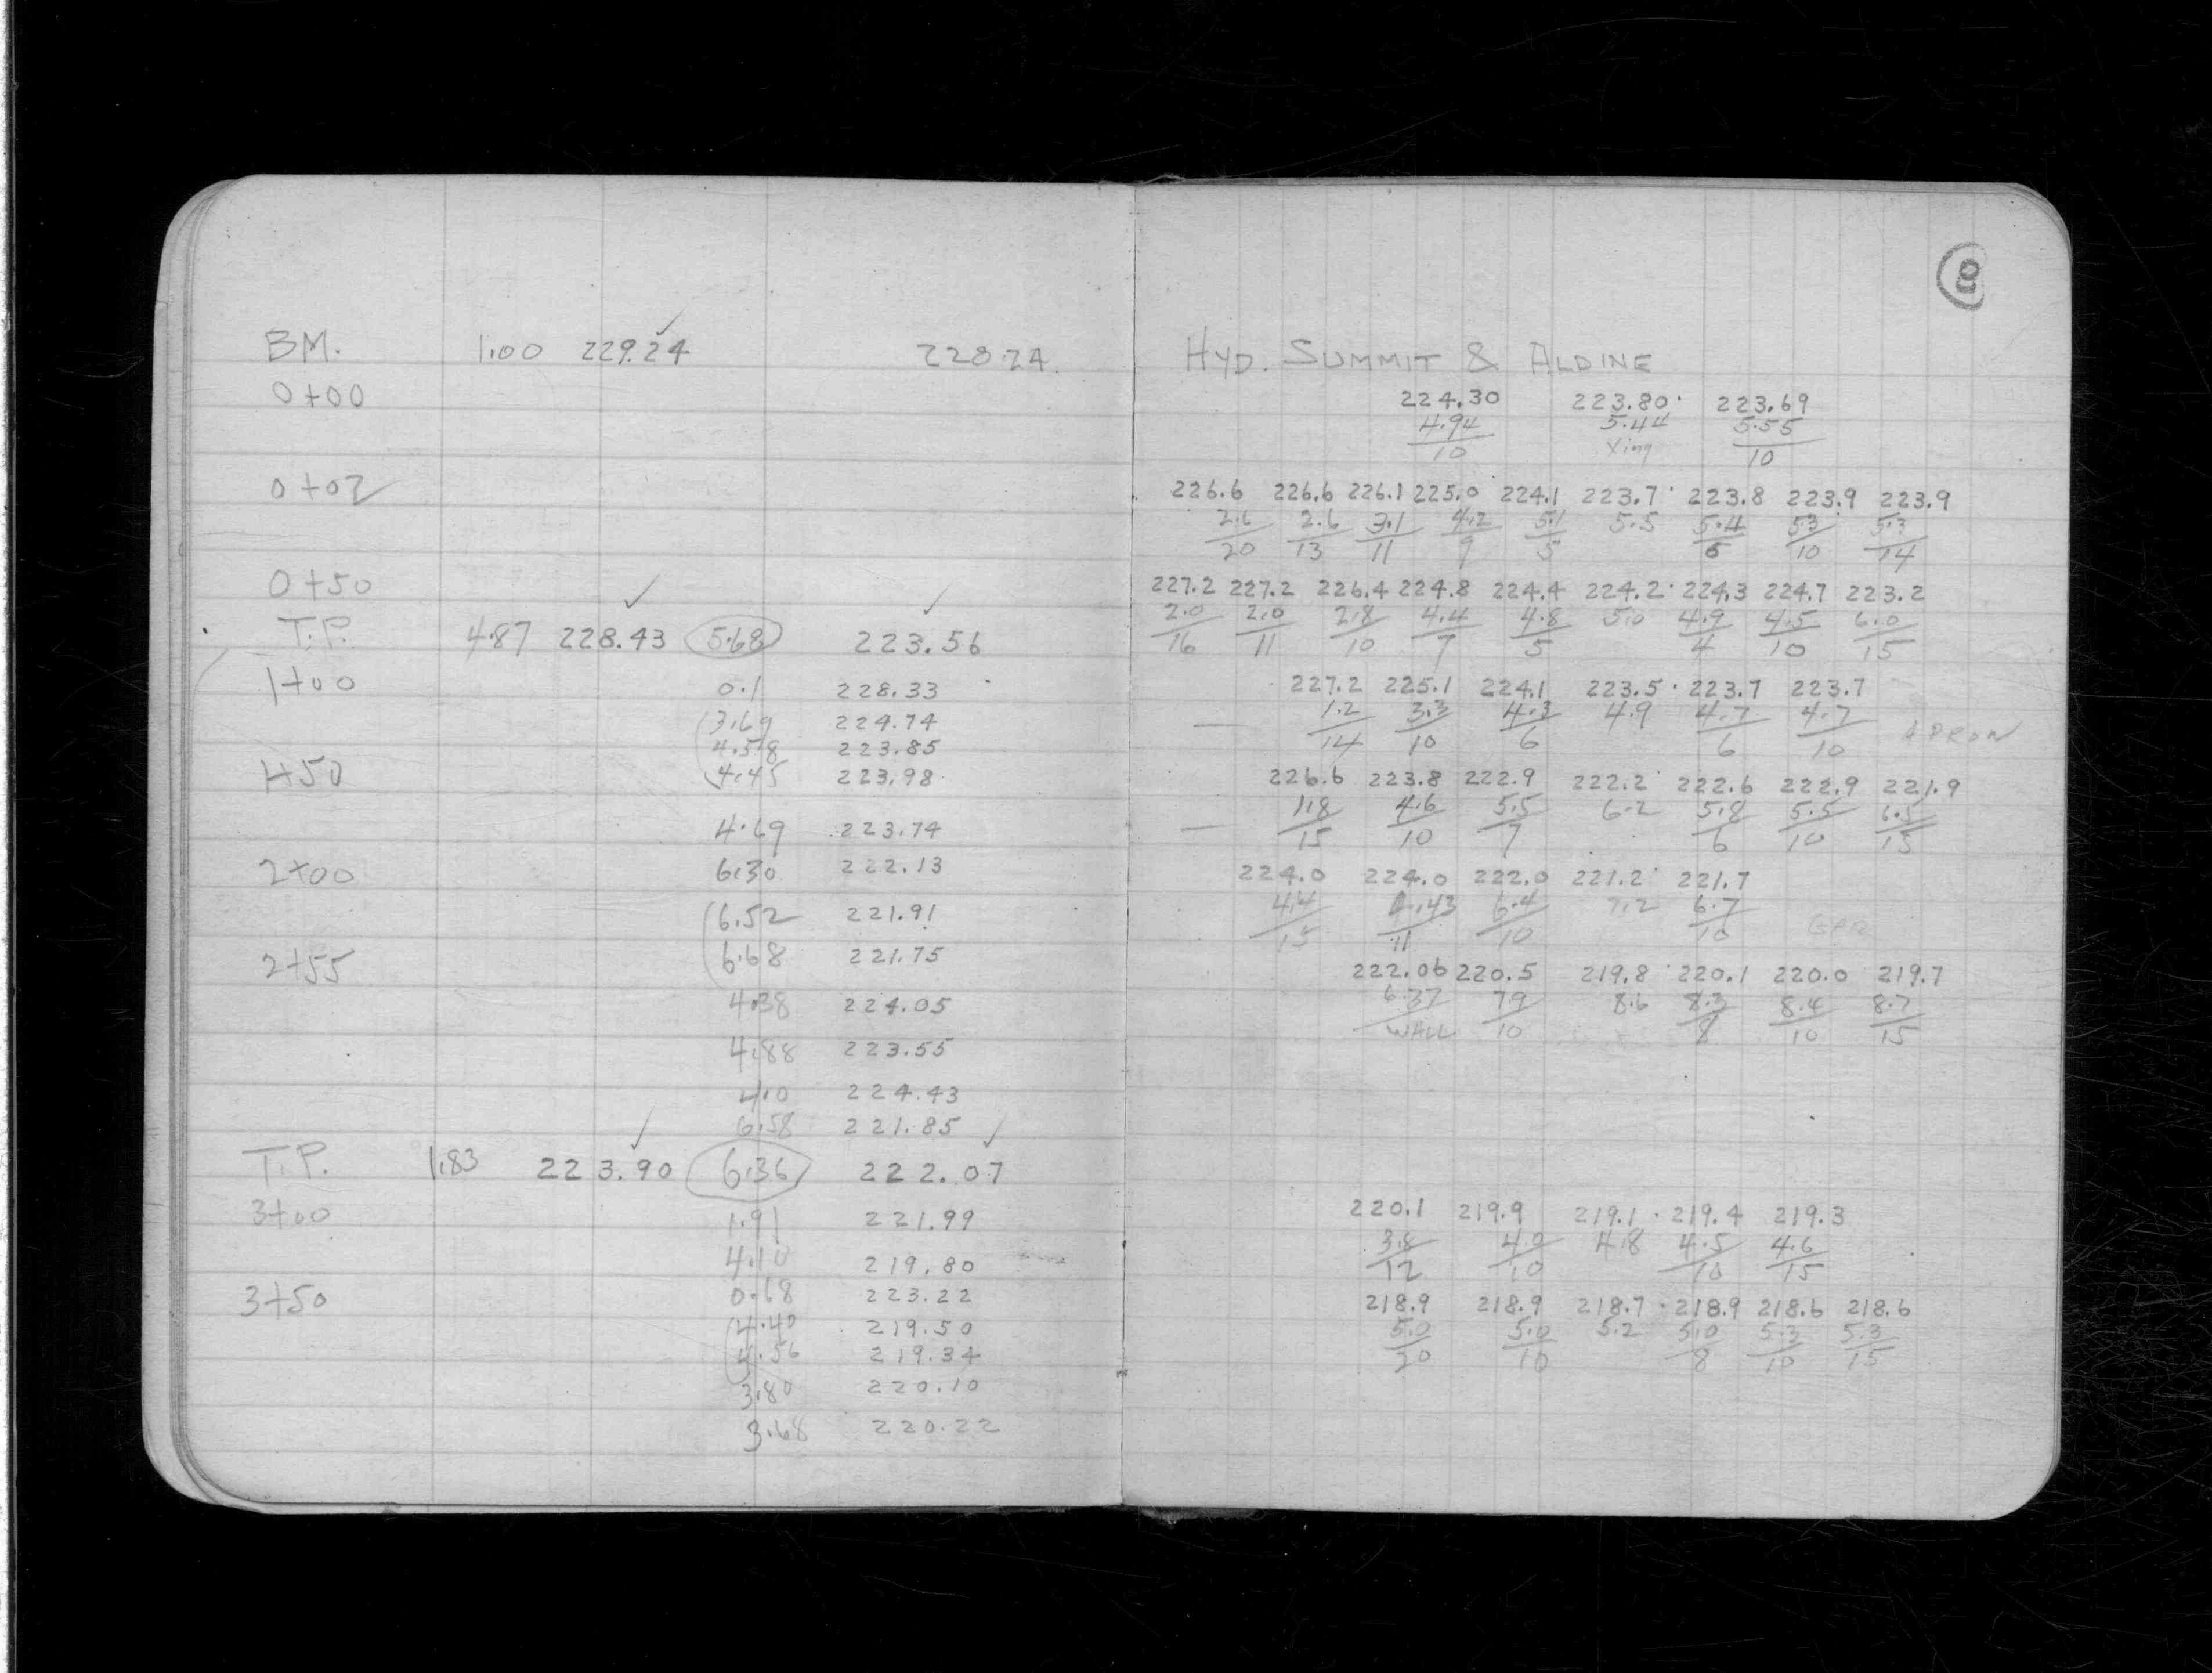 BM. 1.00 229.24 ✓ 228.24
0+00
0+02
0+50
T.P. 4.87 228.43 ✓ 5.68 223.56 ✓
1+00 0.1 228.33
3.69 224.74
4.58 223.85
1+50 4.45 223.98
4.69 223.74
2+00 6.30 222.13
6.52 221.91
2+55 6.68 221.75
4.38 224.05
4.88 223.55
4.10 224.43
6.58 221.85
T.P. 1.83 223.90 ✓ 6.36 222.07 ✓
3+00 1.91 221.99
4.10 219.80
3+50 0.68 223.22
4.40 219.50
4.56 219.34
3.80 220.10
3.68 220.22
HYD. SUMMIT & ALDINE
224.30 223.80 223.69
4.94 5.44 5.55
10 Xing 10
226.6 226.6 226.1 225.0 224.1 223.7 223.8 223.9 223.9
2.6 2.6 3.1 4.2 5.1 5.5 5.4 5.3 5.3
20 13 11 9 5 6 10 14
227.2 227.2 226.4 224.8 224.4 224.2 224.3 224.7 223.2
2.0 2.0 2.8 4.4 4.8 5.0 4.9 4.5 6.0
16 11 10 7 5 4 10 15
227.2 225.1 224.1 223.5 223.7 223.7
1.2 3.3 4.3 4.9 4.7 4.7 APRON
14 10 6 6 10
226.6 223.8 222.9 222.2 222.6 222.9 221.9
1.8 4.6 5.5 6.2 5.8 5.5 6.5
15 10 7 6 10 15
224.0 224.0 222.0 221.2 221.7
4.4 4.43 6.4 7.2 6.7
15 11 10 10
222.06 220.5 219.8 220.1 220.0 219.7
6.37 7.9 8.6 8.3 8.4 8.7
WALL 10 8 10 15
220.1 219.9 219.1 219.4 219.3
3.8 4.0 4.8 4.5 4.6
12 10 10 15
218.9 218.9 218.7 218.9 218.6 218.6
5.0 5.0 5.2 5.0 5.3 5.3
20 10 8 10 15